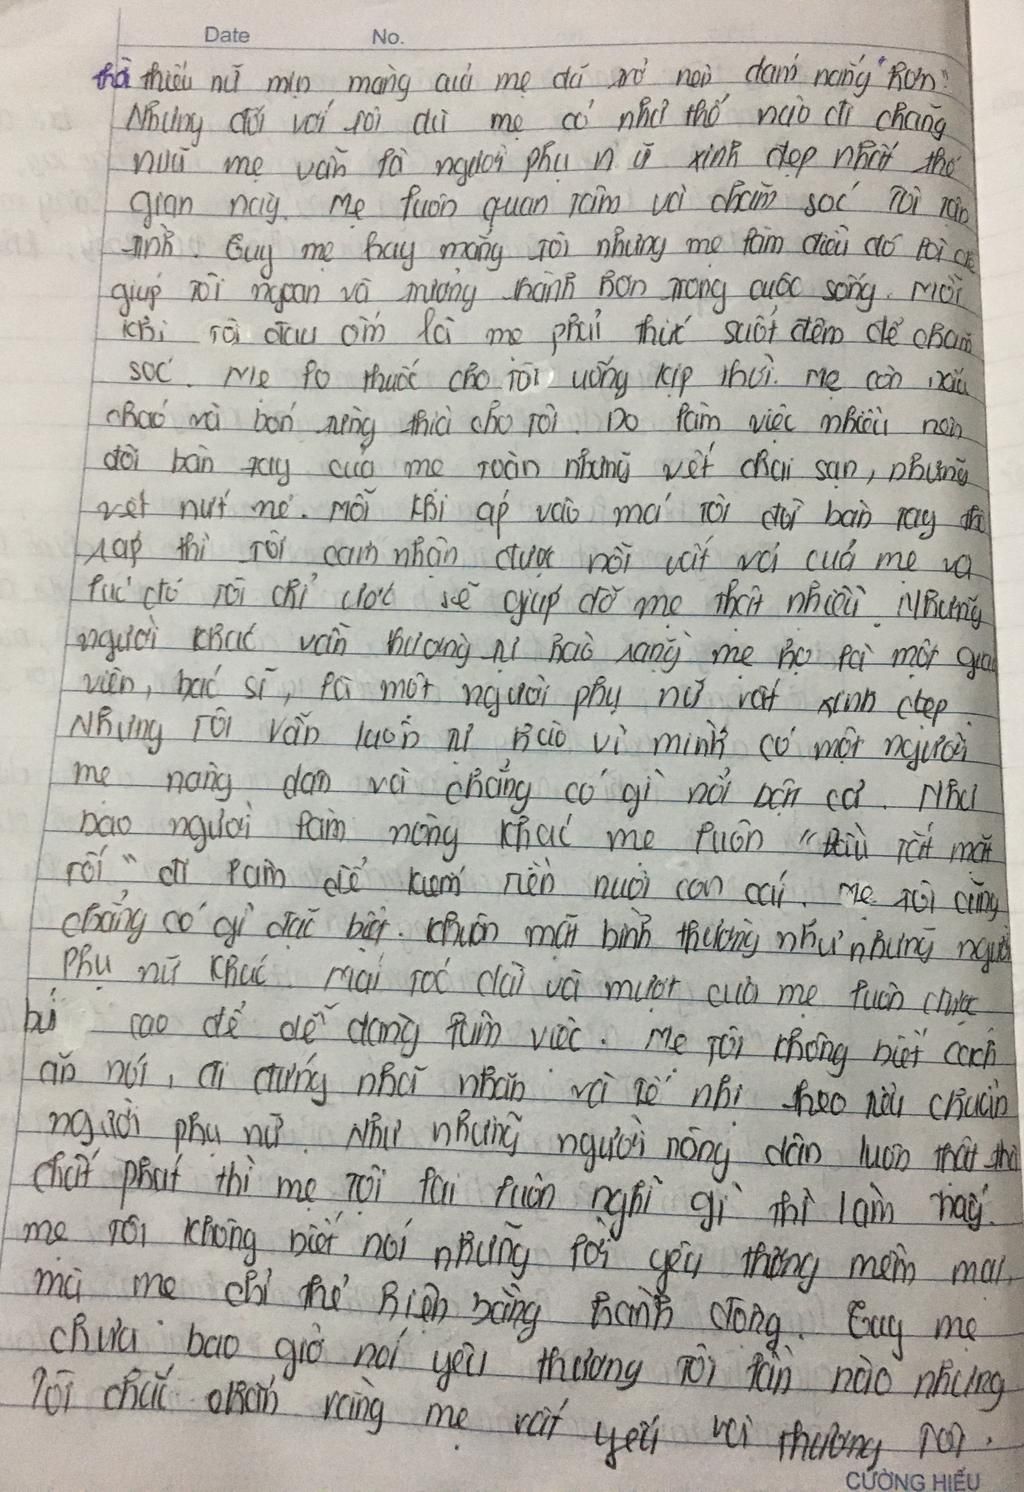 Date No.
thà thiếu nữ mịn màng của mẹ đã trở nên đám nắng hơn".
Nhưng đối với tôi dù mẹ có như thế nào đi chăng
nữa mẹ vẫn là người phụ nữ xinh đẹp nhất thế
gian này. Mẹ luôn quan tâm và chăm sóc tôi tận
tình. Tuy mẹ hay mắng tôi nhưng mẹ làm điều đó là để
giúp tôi ngoan và trưởng thành hơn trong cuộc sống. Mỗi
khi tôi đau ốm là mẹ phải thức suốt đêm để chăm
sóc. Mẹ lo thuốc cho tôi uống kịp thời. Mẹ còn nấu
cháo và bón từng thìa cho tôi. Do làm việc nhiều nên
đôi bàn tay của mẹ toàn những vết chai sạn, những
vết nứt nẻ. Mỗi khi áp vào má tôi đôi bàn tay thô
ráp thì tôi cảm nhận được nỗi vất vả của mẹ và
lúc đó tôi chỉ ước sẽ giúp đỡ mẹ thật nhiều. Những
người khác vẫn thương tự hào rằng mẹ họ là một giáo
viên, bác sĩ, là một người phụ nữ rất xinh đẹp.
Nhưng tôi vẫn luôn tự hào vì mình có một người
mẹ nông dân và chẳng có gì nổi bật cả. Như
bao người làm nông khác mẹ luôn " đầu tắt mặt
tối " đi làm để kiếm tiền nuôi con cái. Mẹ tôi cũng
chẳng có gì đặc biệt. Khuôn mặt bình thường như những người
phụ nữ khác. Mái tóc dài và mượt của mẹ luôn được
búi cao để dễ dàng làm việc. Mẹ tôi không biết cách
ăn nói, đi đứng nhã nhặn và tế nhị theo tiêu chuẩn
người phụ nữ. Như những người nông dân luôn thật thà
chất phát thì mẹ tôi lại luôn nghĩ gì thì làm nấy.
mẹ tôi không biết nói những lời yêu thương mềm mại,
mà mẹ chỉ thể hiện bằng hành động. Tuy mẹ
chưa bao giờ nói yêu thương tôi lần nào nhưng
Tôi chắc chắn rằng mẹ rất yêu và thương tôi.
CƯỜNG HIẾU